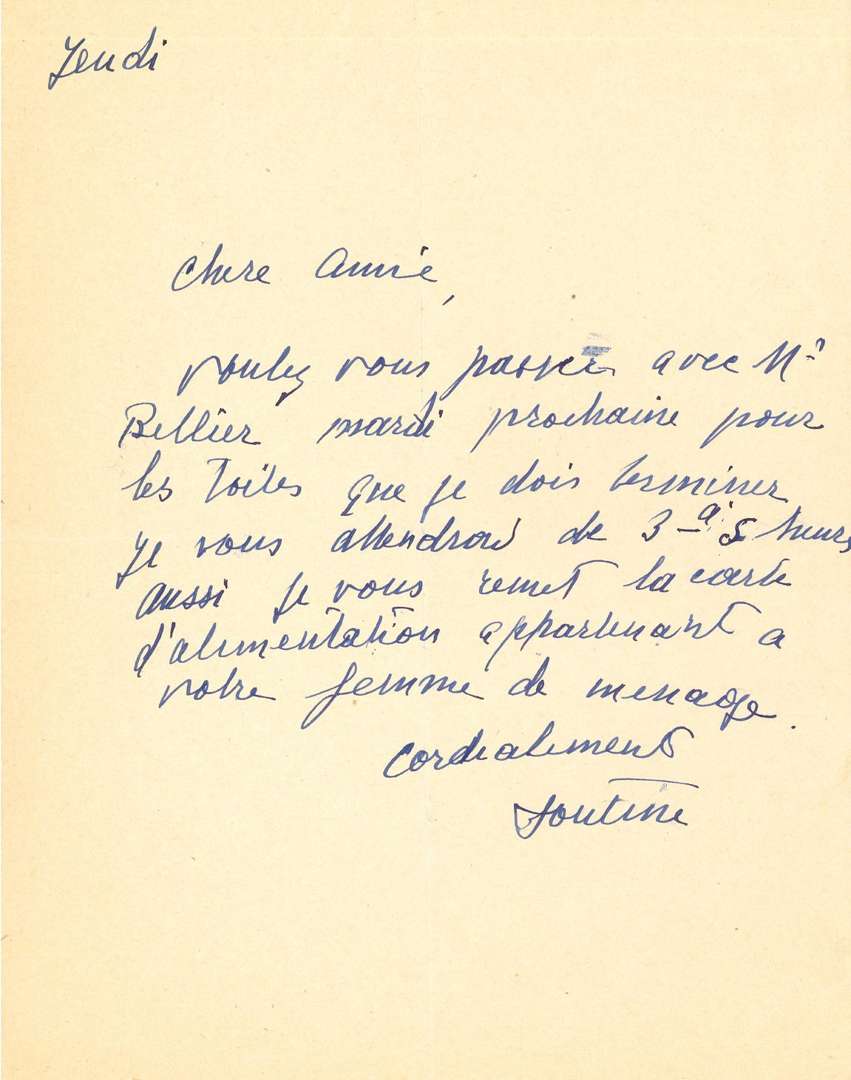 Jeudi
Chere Amie,
voulez vous passer avec Mr
Bellier mardi prochaine pour
les toiles que je dois terminer
je vous attendrai de 3 - à 5 heures
aussi je vous remet la carte
d'alimentation appartenant a
votre femme de menage.
cordialement
Soutine